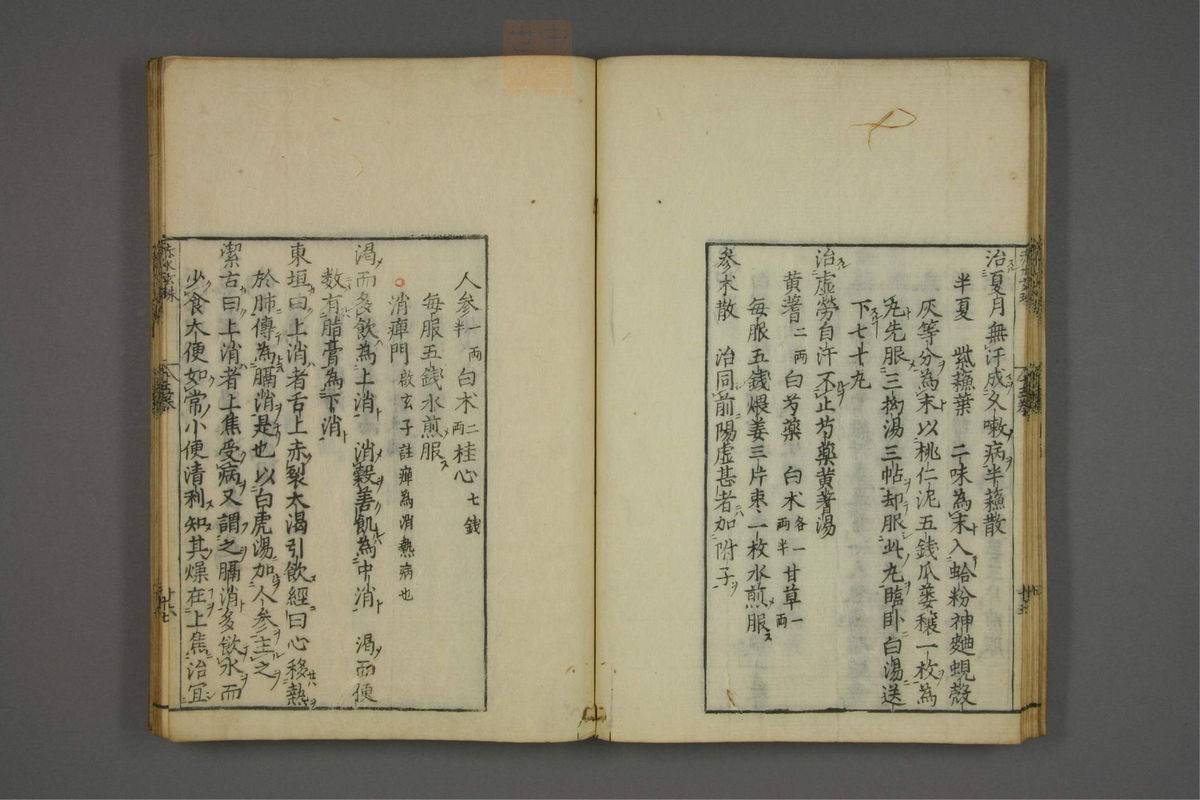 治夏月無汗成久嗽病半蘓散
半夏 紫蘓葉 二味為末入蛤粉神麯蜆殻
灰等分為末以桃仁泥五錢瓜蔞穰一枚為
丸先服三拗湯三帖却服此丸臨卧白湯送
下七十丸
治虚勞自汗不止芍藥黄蓍湯
黄蓍二両 白芍藥 白朮各一両半 甘草一両
每服五錢煨姜三片枣一枚水煎服
参朮散 治同前陽虚甚者加附子
人参一両半 白朮二両 桂心七錢
每服五錢水煎服
消癉門 啟玄子註癉為消熱病也
渴而多飲為上消 消穀善飢為中消 渴而便
数有脂膏為下消
東垣曰上消者舌上赤裂大渴引飲經曰心移熱
於肺傳為膈消是也以白虎湯加人参主之
潔古曰上消者上焦受病又謂之膈消多飲水而
少食大便如常小便清利知其燥在上焦治宜
赤水玄珠
廿七